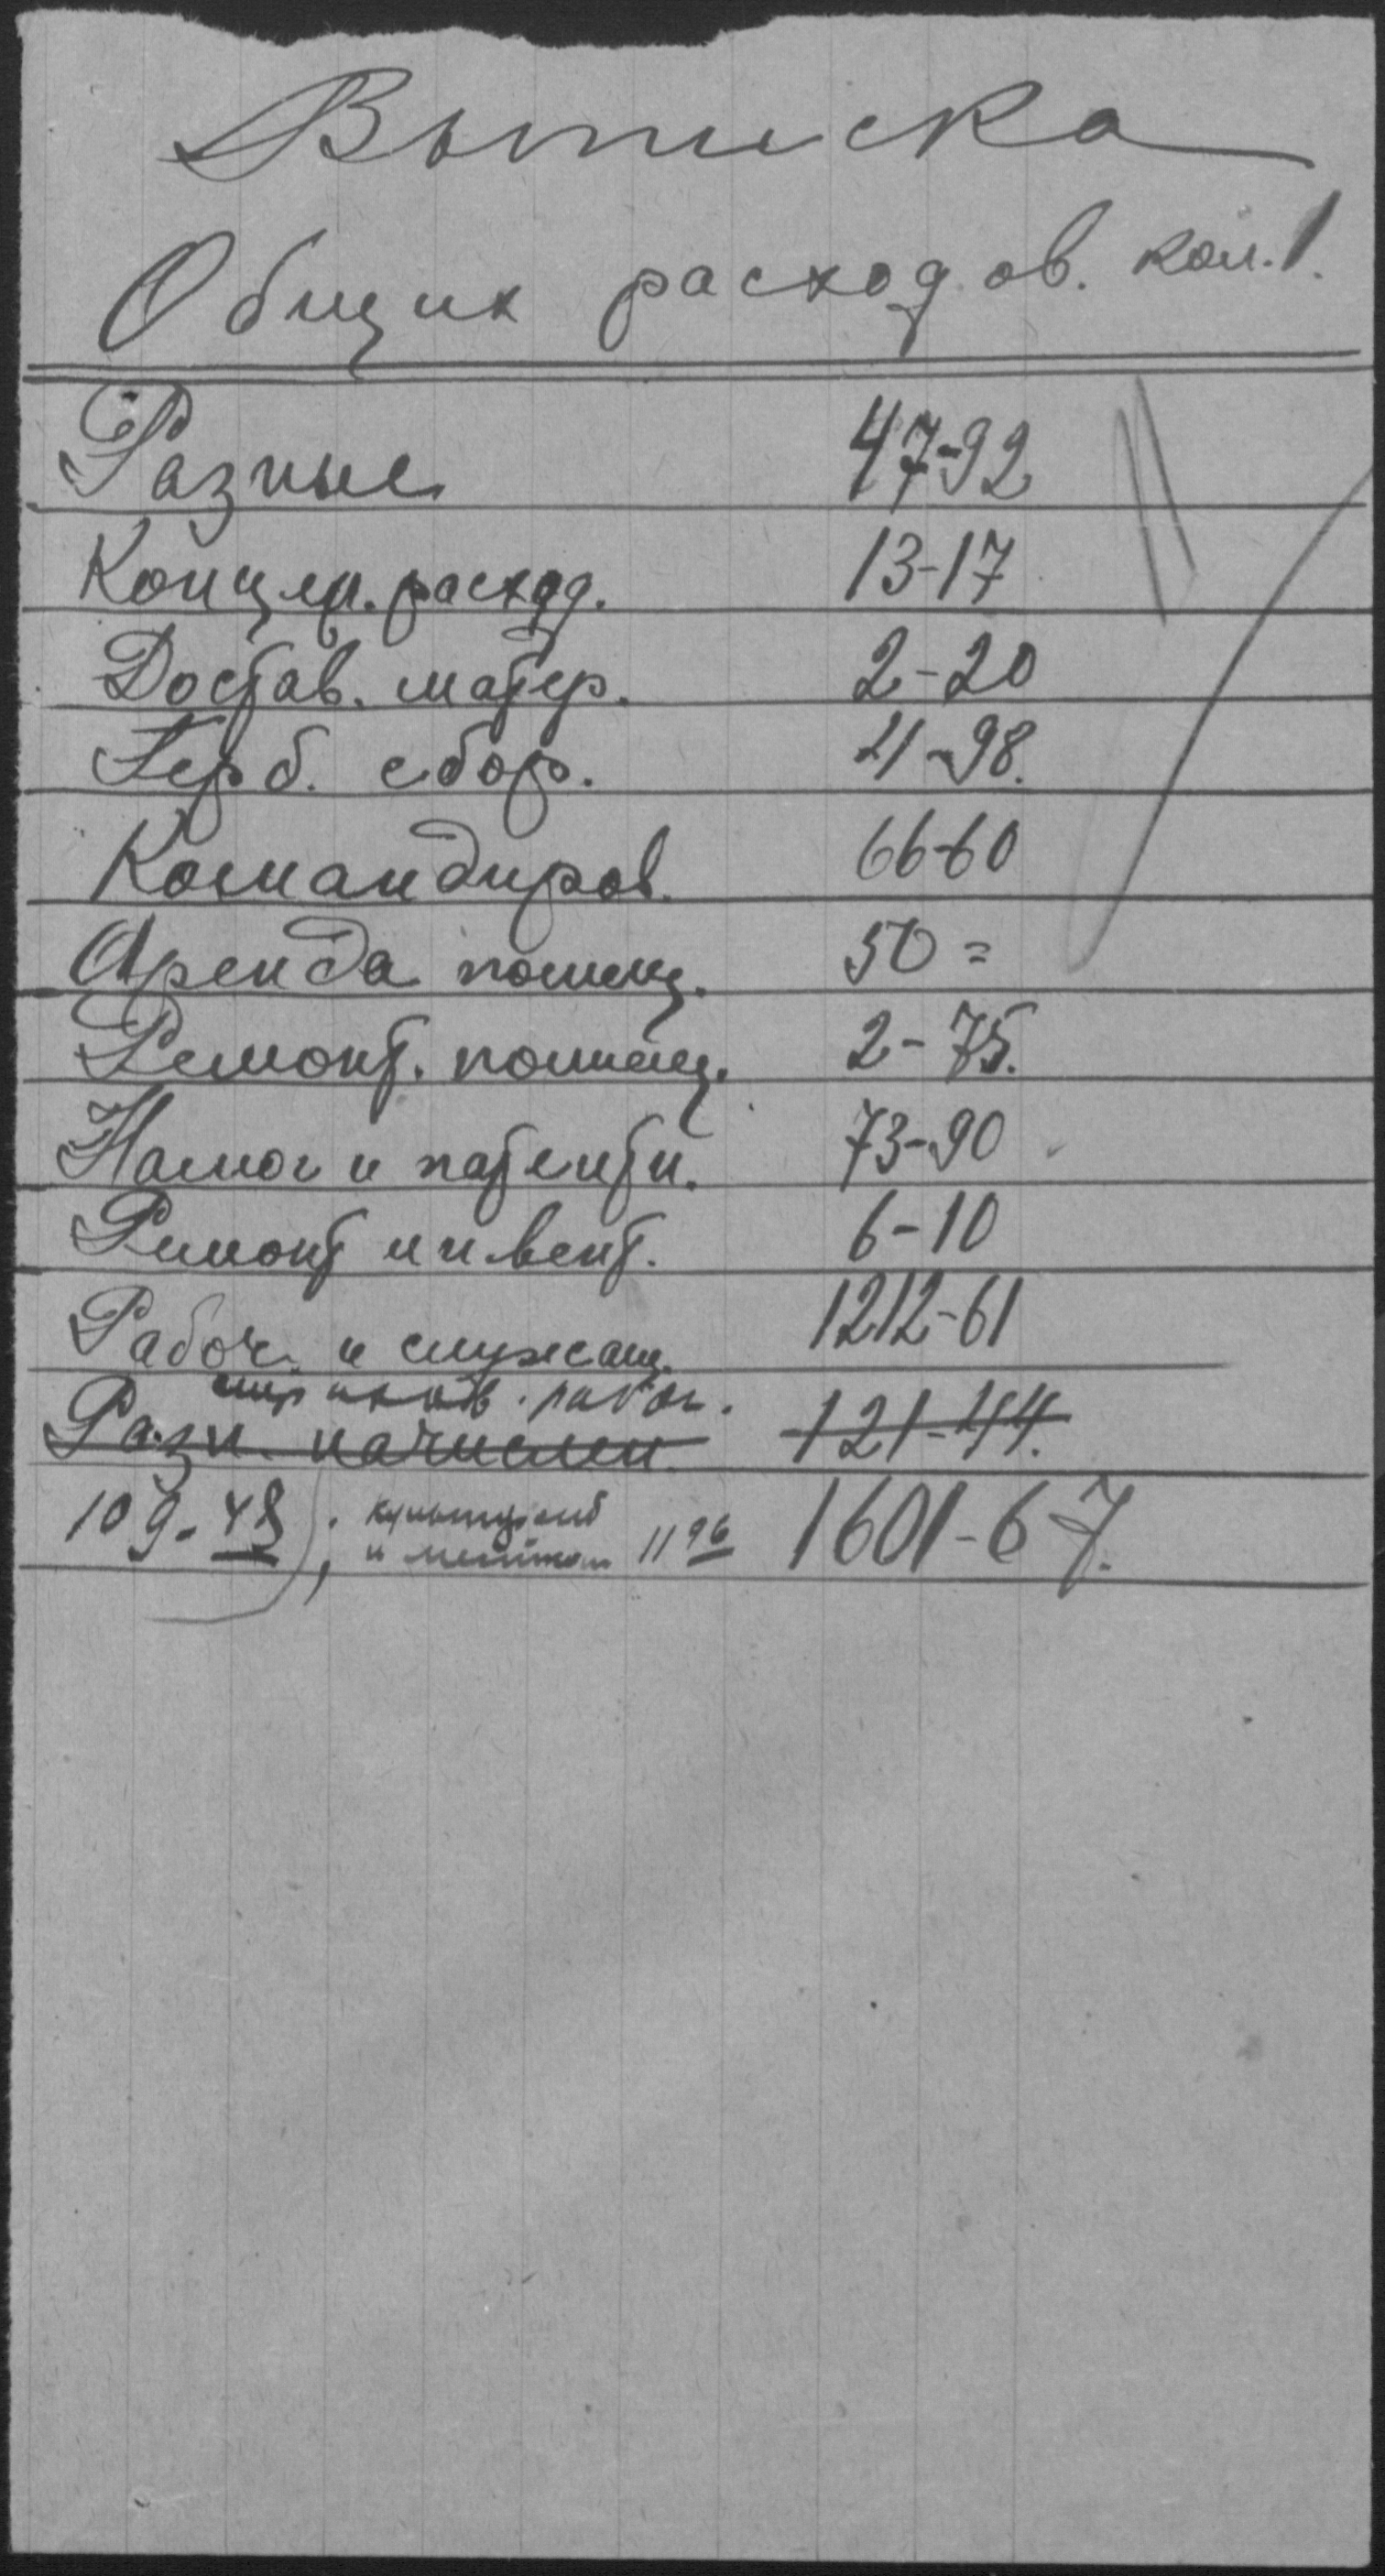 Выписка
Общих расходов. кол. 1.
Разные 47-92
Канцел. расход. 13-17
Достав. матер. 2-20
Герб. сбор. 4-98.
Командиров. 66-60
Аренда помещ. 50=
Ремонт. помещ. 2-75.
Налог и патенты. 73-90
Ремонт инвент. 6-10
Рабоч. и служащ. 1212-61
Разн. начислен. 121-44.
109-48; культурные 1601-67.
и 11 96